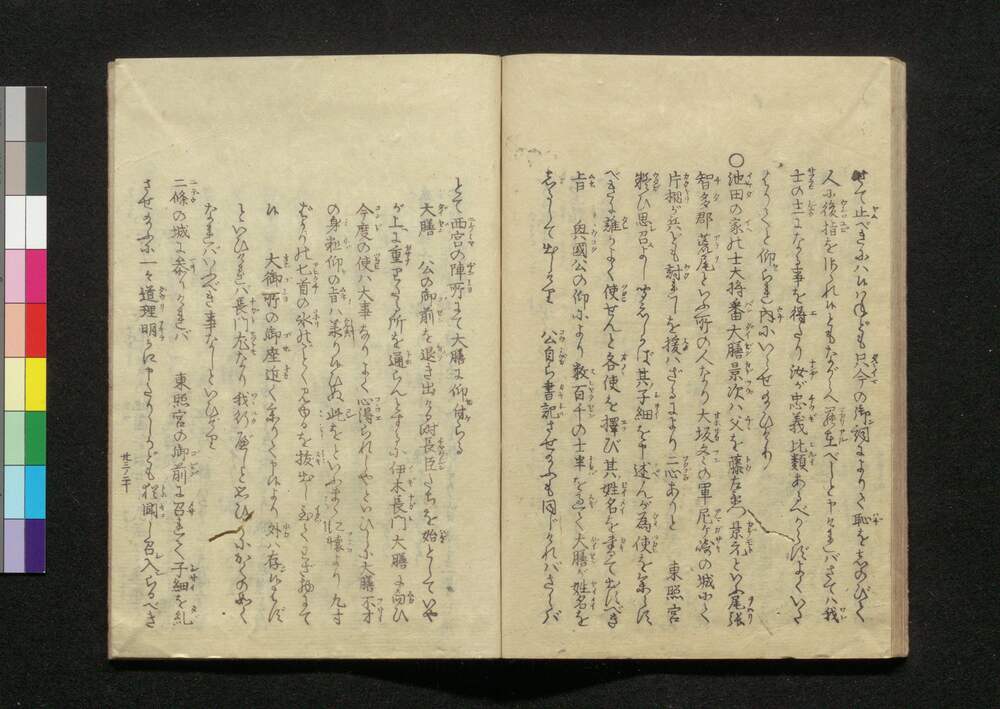 せて止べきにハ候ハねども只今の御詞によりて恥をしのびて
人に後指をさゝれ候とも力なしへ罷在べしと申けれバさてハ我
士の士になる事を得たり汝が忠義比類あるべからずよくいた
はりてよと仰られ内にいらせ給ひけり
○池田の家の士大将番大膳景次ハ父を藤左衛門景元といふ尾張
智多郡荒尾といふ所の人なり大坂冬の軍尼が崎の城にて
片桐が兵ども討れしを援ハざるにより二心ありと 東照宮
疑ひ思召よし聞えしかば其子細を申述んが為使を参らす
べきに誰かよく使せんと各使を擇び其姓名を書て出すべき
旨 興國公の仰により数百千の士卒を置て大膳が姓名を
しるして出しけり 公自ら書記させ給ふも同じけれバさらバ
とて西宮の陣所にて大膳に仰付らる
大膳 公の御前を退き出ける時長臣たちを始としていや
が上に重りたる所を通らんとするに伊木長門大膳に向ひ
今度の使ハ大事なりよく心得られしやといひしに大膳不才
の身 仰の旨ハ承り候ひぬ此をといふまゝに懐より九寸
ばかりの匕首の氷のごとく見ゆるを抜出し
ひ 大御所の御座近く参りて候より外ハ存ぜず
といひければ長門尤なり我行届しと思ひしにかくのごとく
なればいふべき事なしといひけり
二條の城に参りければ 東照宮の御前に召れて子細を糺
させ給ふに一々道理明らかに申たりしかども猶聞し召入らるべき